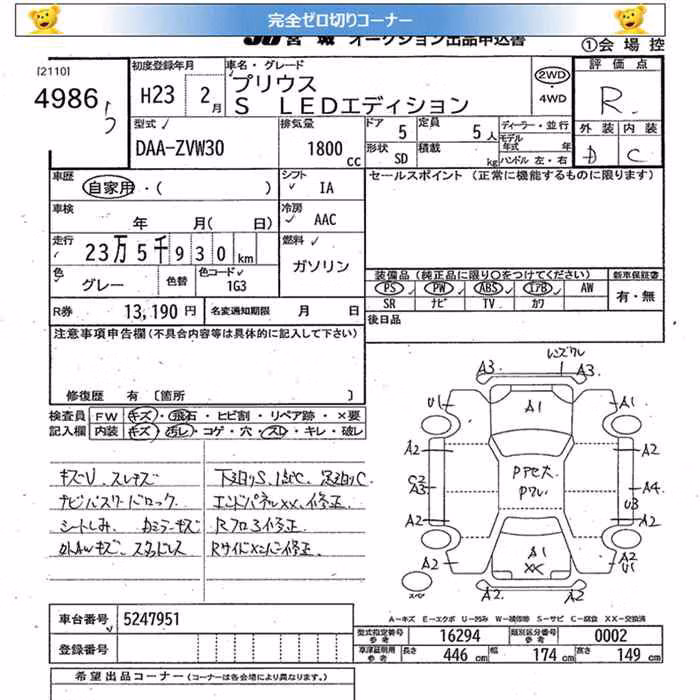 完全ゼロ切りコーナー
JU宮城 オークション出品申込書
①会場控
[2110]
4986
初度登録年月
H23 2月
車名・グレード
プリウス
S LEDエディション
2WD
・4WD
評価点
R
外装 内装
D C
型式
DAA-ZVW30
排気量
1800cc
ドア 5
定員 5人
形状 SD
積載 kg
ディーラー・並行
モデル年式 年
ハンドル 左・右
車歴
自家用・( )
シフト
IA
セールスポイント (正常に機能するものに限ります)
車検
年 月( 日)
冷房
AAC
走行
23万5千930km
燃料
ガソリン
色
グレー
色替
色コード
1G3
装備品(純正品に限り○をつけてください)
新車保証書
PS PW ABS エアB AW
SR ナビ TV カワ
有・無
R券 13,190円
名変通知期限 月 日
後日品
注意事項申告欄(不具合内容等は具体的に記入して下さい)
修復歴 有 [箇所 ]
検査員 FW キズ・飛石・ヒビ割・リペア跡・×要
記入欄 内装 キズ・汚レ・コゲ・穴・スレ・キレ・破レ
キズU、スレキズ
シートしみ、
下廻りS、
エンドパネルXX、修正
Rフロア修正
Rサイドメンバー修正
レンズワレ
A3 A3
U1 A1 A1
A2 A2
C2
A3
A4
U3
A2 A2
A2 A1
XX
A2
U1
A2 A2
スペア
車台番号 5247951
A-キズ E-エクボ U-凹み W-補修跡 S-サビ C-腐食 XX-交換済
登録番号
型式指定番号 参考 16294
類別区分番号 参考 0002
車庫証明用 参考
長さ 446cm
幅 174cm
高さ 149cm
希望出品コーナー(コーナーは各会場により異なります。)